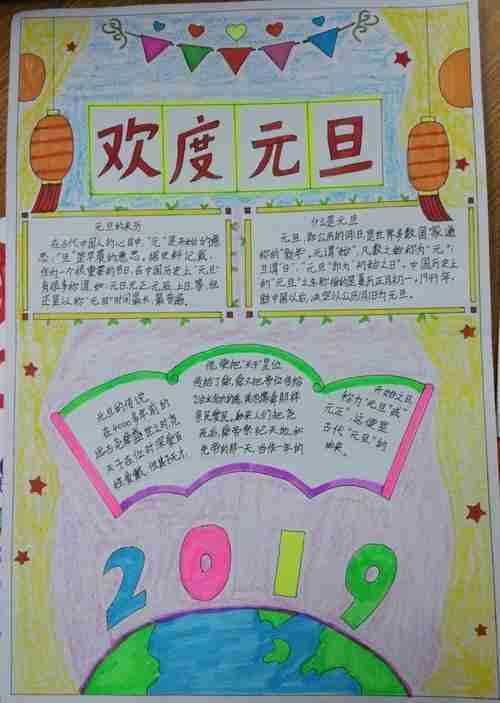 欢度元旦
元旦的来历
在古代中国人的心目中,"元"是开始的意
思,"旦"是早晨的意思。据史料记载,
作为一个很重要的节日,在中国历史上"元旦"
有很多称谓,如:元日元正元辰上日等,但
还是以称"元旦"时间最长,最普遍。
什么是元旦
元旦,即公历的1月1日是世界多数国家通
称的"新年"。元谓"始",凡数之始称为"元";
旦谓"日";"元旦"即为"初始之日"。中国历史上
的"元旦"之名称指的是夏历正月初一,1949年
新中国以后,决定以公历1月1日为元旦。
元旦的传说
在4000多年前的
远古尧舜盛世之时,尧
天子在位时深受百
姓爱戴,但其子无才,
他便把"天子"皇位
传给了舜,舜又把帝位传给
亲民爱民,
死后,舜帝祭祀天地,和
先帝的那一天,当作一年的
开始之日
称为"元旦"或"
元正",这便是
古代"元旦"的
由来。
2019